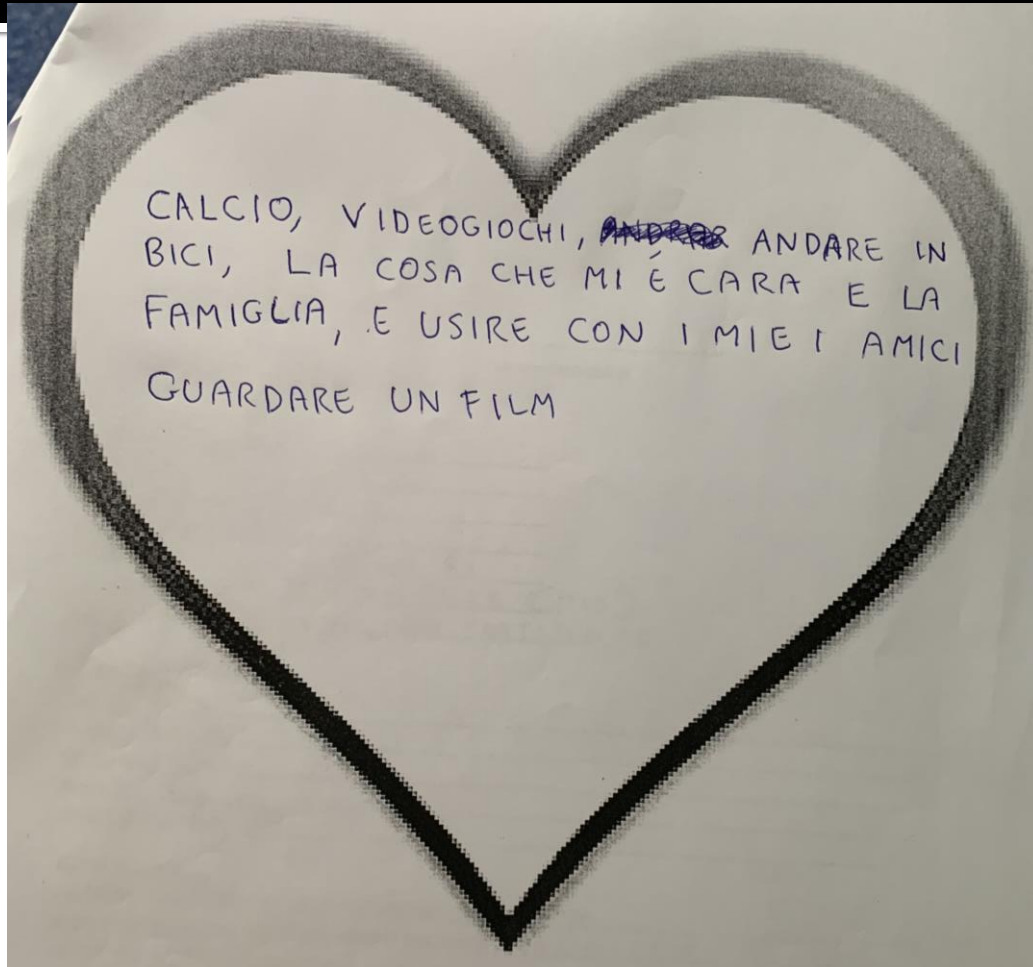 CALCIO, VIDEOGIOCHI, ANDARE IN
BICI, LA COSA CHE MI É CARA E LA
FAMIGLIA, E USIRE CON I MIEI AMICI
GUARDARE UN FILM